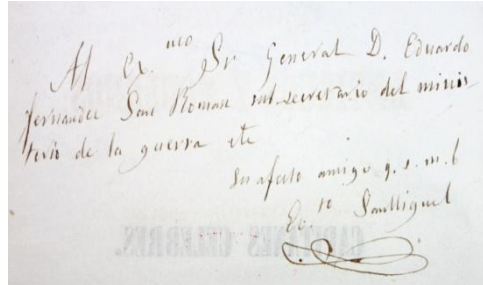 Al Ex.mo Sr General D. Eduardo
Fernandez San Roman subsecretario del minis-
terio de la guerra etc
Su afecto amigo q. s. m. b
Ev.to San Miguel
CAPITANES CÉLEBRES.